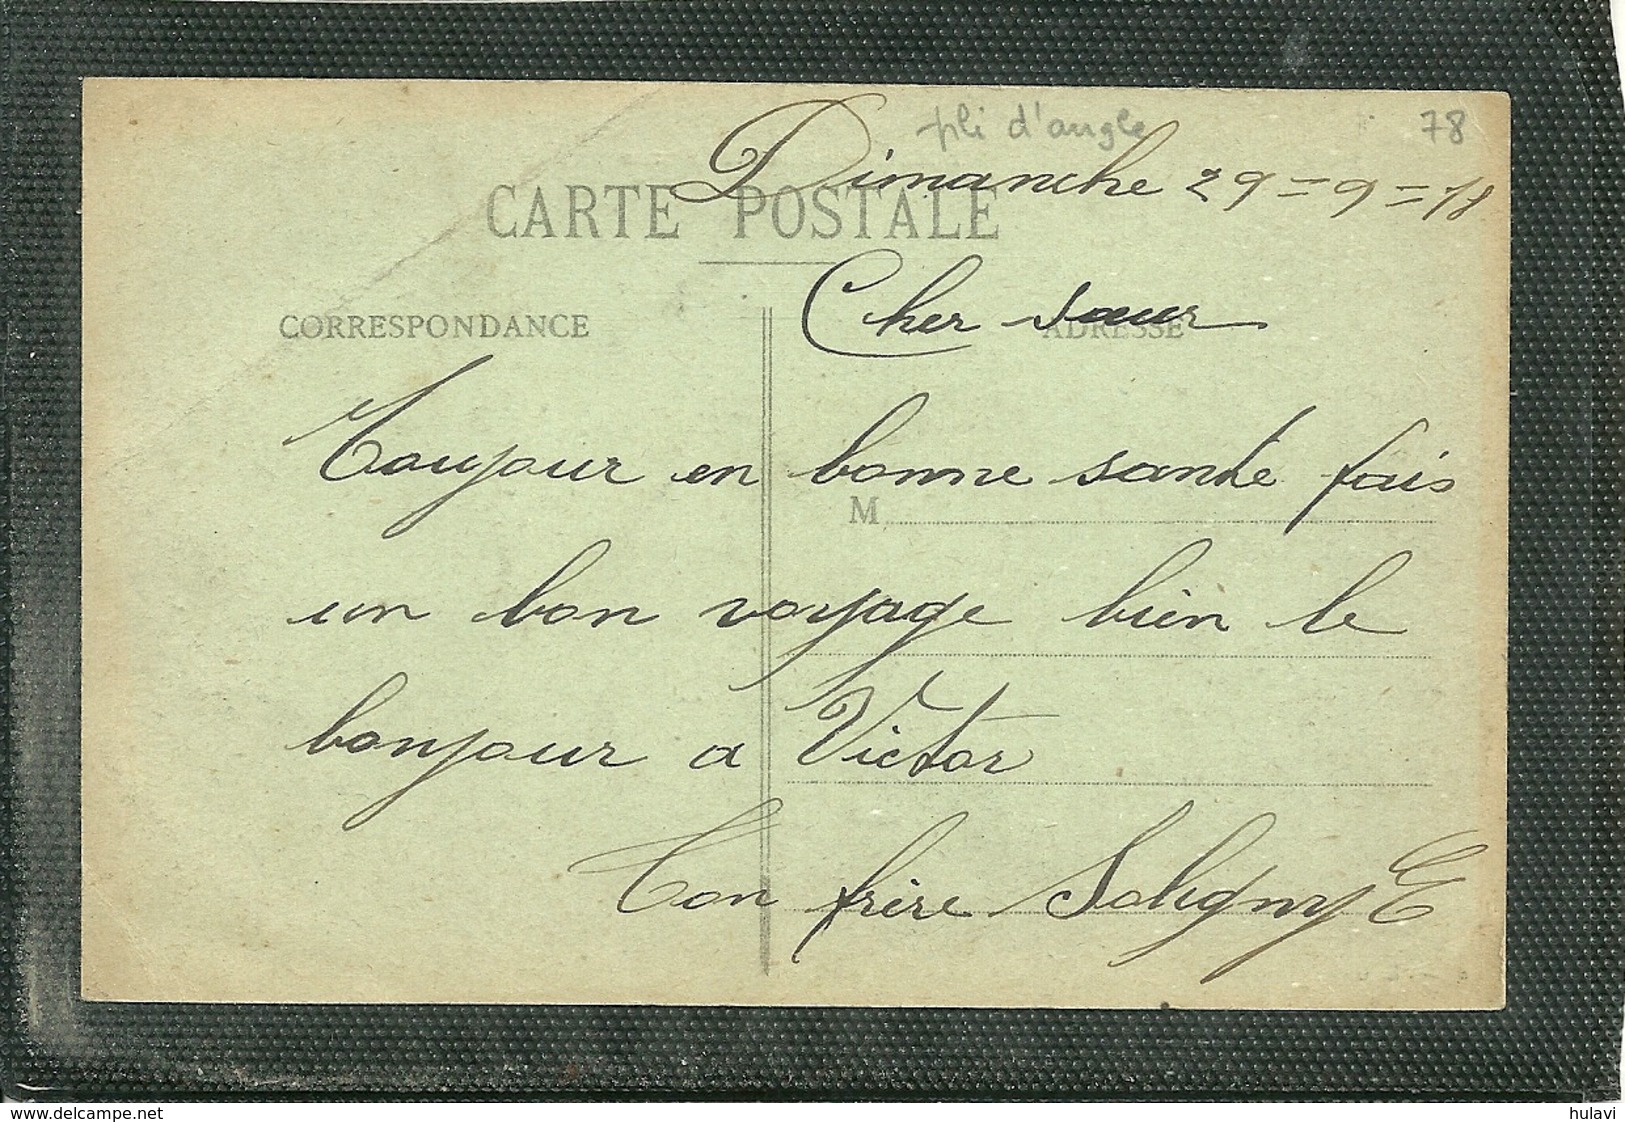 pli d'angle 78
Dimanche 29=9=18
CARTE POSTALE
Cher sœur
CORRESPONDANCE ADRESSE
Toujour en bonne sante fais
M
un bon voyage bien le
bonjour a Victor
Ton frère Soligny E
www.delcampe.net hulavi